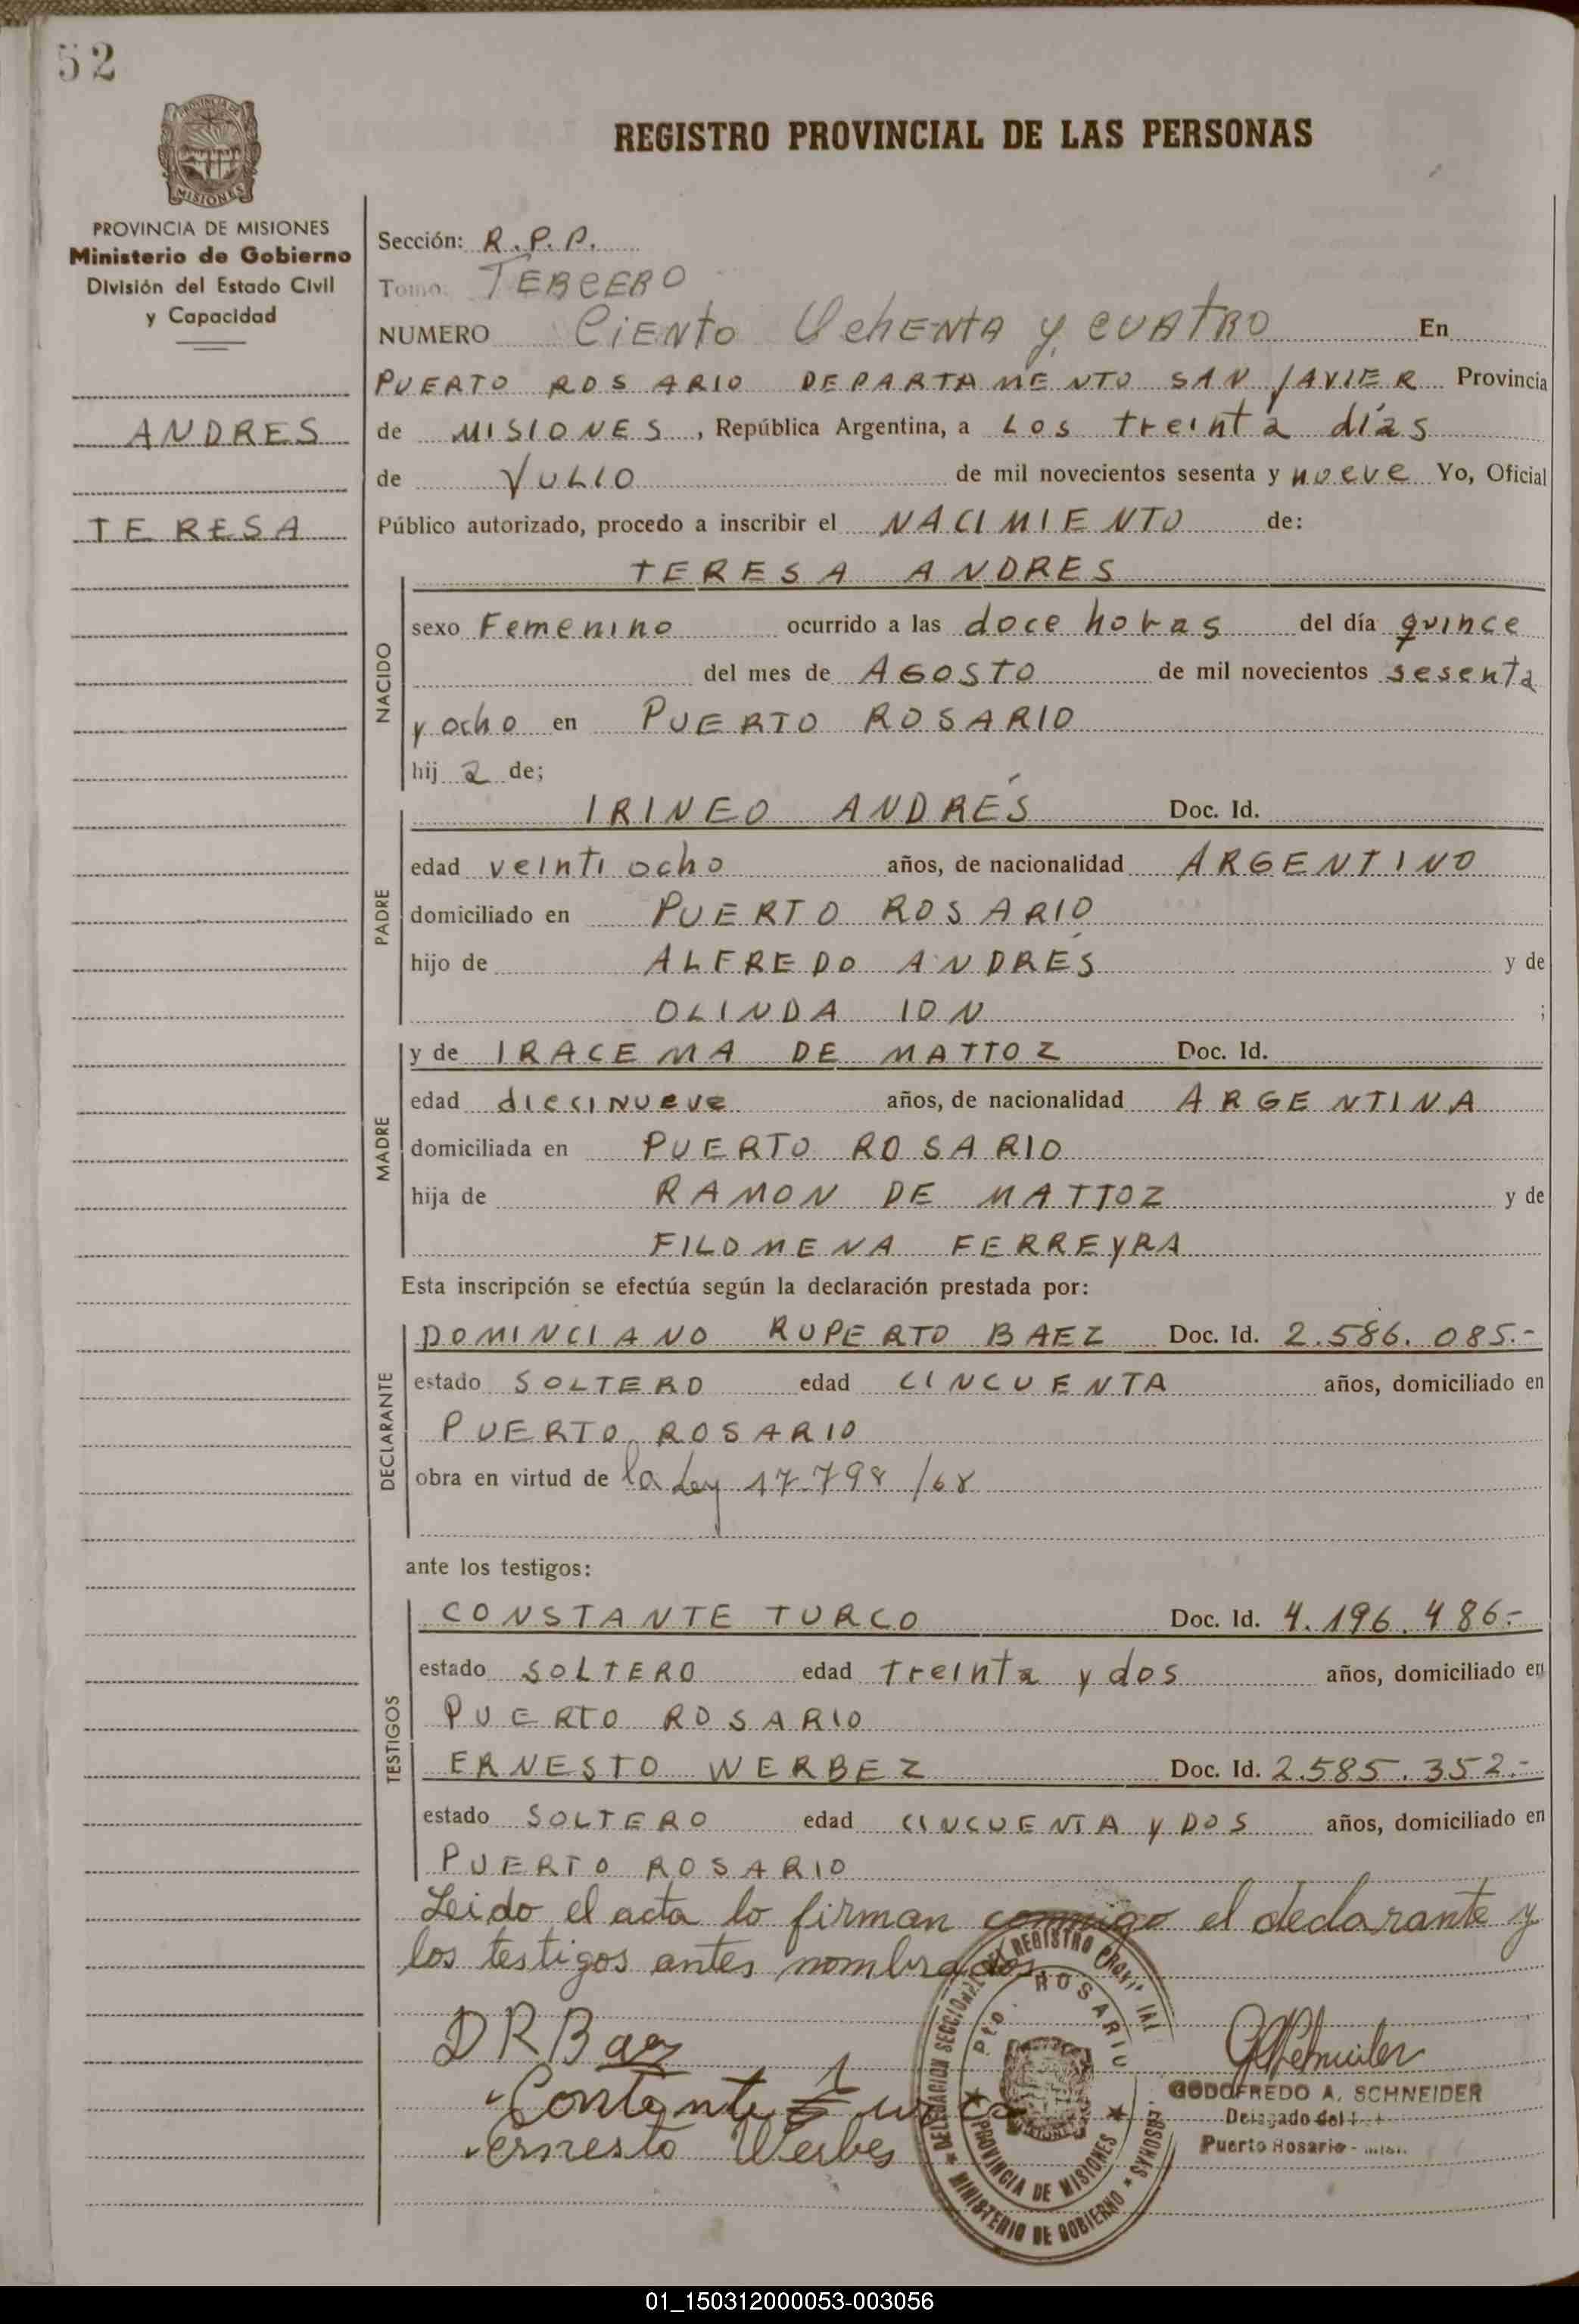 52
PROVINCIA DE MISIONES
REGISTRO PROVINCIAL DE LAS PERSONAS
PROVINCIA DE MISIONES
Ministerio de Gobierno
División del Estado Civil
y Capacidad
ANDRES
TERESA
Sección: R.P.P.
Tomo: TERCERO
NUMERO Ciento OchENTA y CUATRO En
PUERTO ROSARIO DEPARTAMENTO SAN JAVIER Provincia
de MISIONES, República Argentina, a Los treinta días
de JULIO de mil novecientos sesenta y nueve Yo, Oficial
Público autorizado, procedo a inscribir el NACIMIENTO de:
NACIDO
TERESA ANDRES
sexo Femenino ocurrido a las doce horas del día quince
del mes de AGOSTO de mil novecientos sesenta
y ocho en PUERTO ROSARIO
hij a de;
PADRE
IRINEO ANDRÉS Doc. Id.
edad veinti ocho años, de nacionalidad ARGENTINO
domiciliado en PUERTO ROSARIO
hijo de ALFREDO ANDRÉS y de
OLINDA ION ;
MADRE
y de IRACEMA DE MATTOZ Doc. Id.
edad diecinueve años, de nacionalidad ARGENTINA
domiciliada en PUERTO ROSARIO
hija de RAMON DE MATTOZ y de
FILOMENA FERREYRA
Esta inscripción se efectúa según la declaración prestada por:
DECLARANTE
DOMINCIANO RUPERTO BAEZ Doc. Id. 2.586.085.-
estado SOLTERO edad CINCUENTA años, domiciliado en
PUERTO ROSARIO
obra en virtud de la Ley 17.798/68
ante los testigos:
TESTIGOS
CONSTANTE TURCO Doc. Id. 4.196.486-
estado SOLTERO edad treinta y dos años, domiciliado en
PUERTO ROSARIO
ERNESTO WERBEZ Doc. Id. 2.585.352.-
estado SOLTERO edad CINCUENTA y DOS años, domiciliado en
PUERTO ROSARIO
Leido el acta lo firman conmigo el declarante y
los testigos antes nombrados.
DRBaez
ernesto Werbes
DELEGACION SECCIONAL DEL REGISTRO PROVINCIAL
Pto. ROSARIO
PROVINCIA DE MISIONES
MINISTERIO DE GOBIERNO
GODOFREDO A. SCHNEIDER
Delegado del
Puerto Rosario - Mis.
01_150312000053-003056